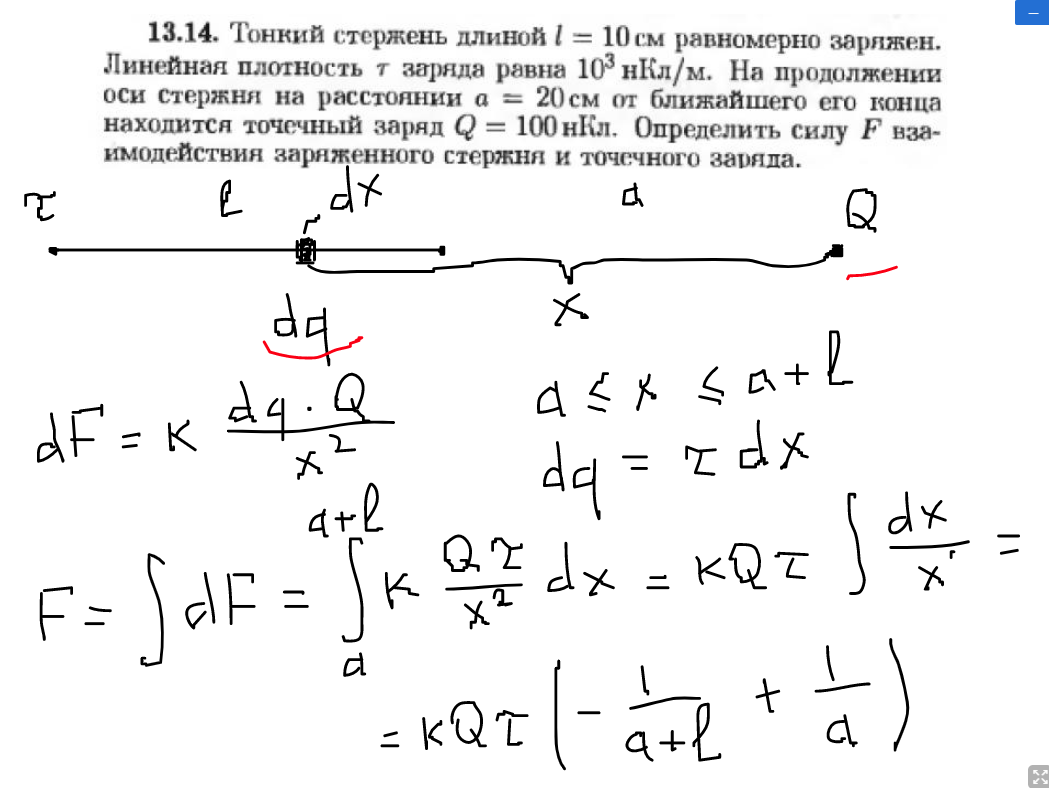 13.14. Тонкий стержень длиной l = 10 см равномерно заряжен.
Линейная плотность τ заряда равна 10³ нКл/м. На продолжении
оси стержня на расстоянии a = 20 см от ближайшего его конца
находится точечный заряд Q = 100 нКл. Определить силу F вза-
имодействия заряженного стержня и точечного заряда.
τ l dx a Q
x
dq
a ≤ x ≤ a+l
dF = k dq · Q / x²
dq = τ dx
F = ∫ dF = ∫ₐᵃ⁺ˡ k Qτ / x² dx = kQτ ∫ dx / x =
= kQτ ( - 1 / a+l + 1 / a )